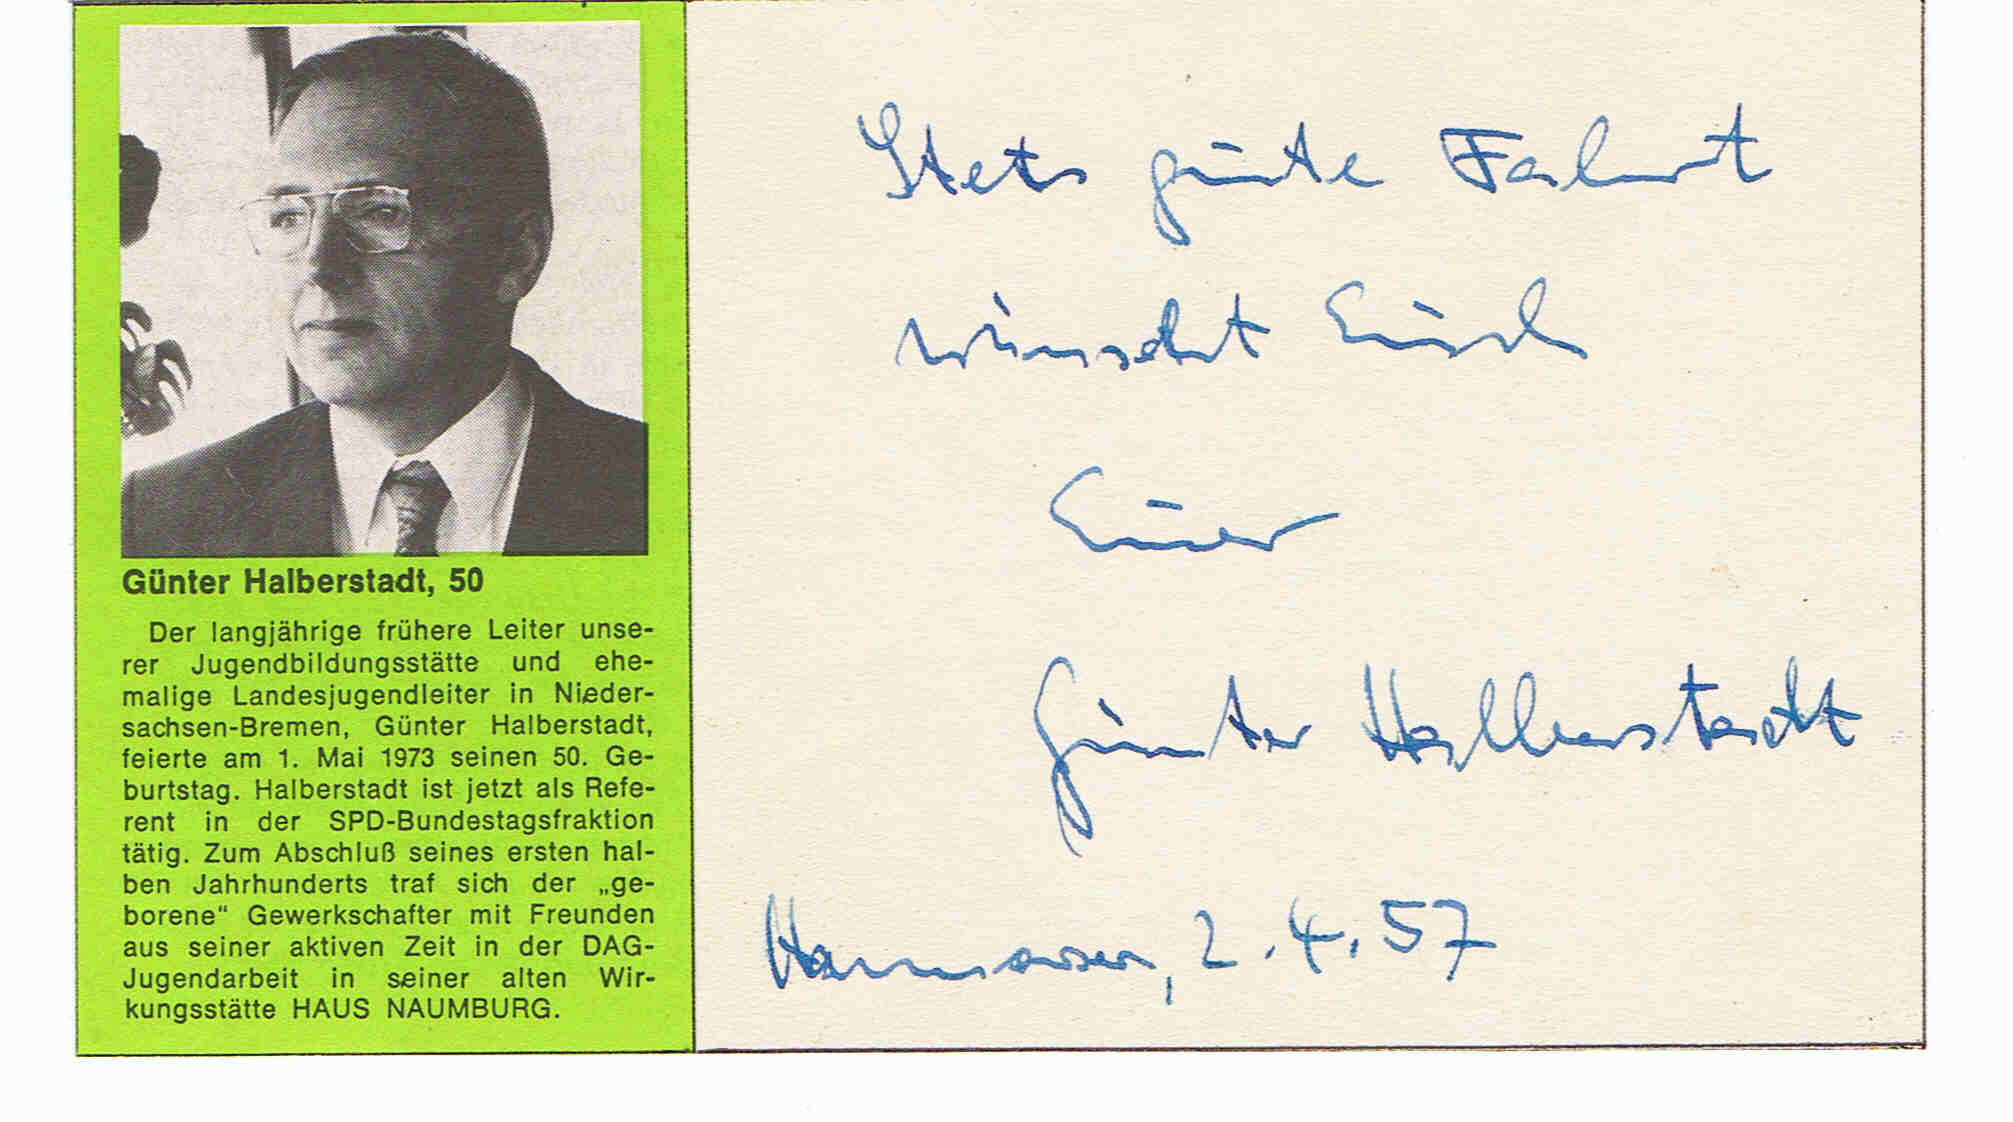 Günter Halberstadt, 50
Der langjährige frühere Leiter unse-
rer Jugendbildungsstätte und ehe-
malige Landesjugendleiter in Nieder-
sachsen-Bremen, Günter Halberstadt,
feierte am 1. Mai 1973 seinen 50. Ge-
burtstag. Halberstadt ist jetzt als Refe-
rent in der SPD-Bundestagsfraktion
tätig. Zum Abschluß seines ersten hal-
ben Jahrhunderts traf sich der „ge-
borene“ Gewerkschafter mit Freunden
aus seiner aktiven Zeit in der DAG-
Jugendarbeit in seiner alten Wir-
kungsstätte HAUS NAUMBURG.
Stets gute Fahrt
wünscht Euch
Euer
Günter Halberstadt
Hannover, 2.4.57